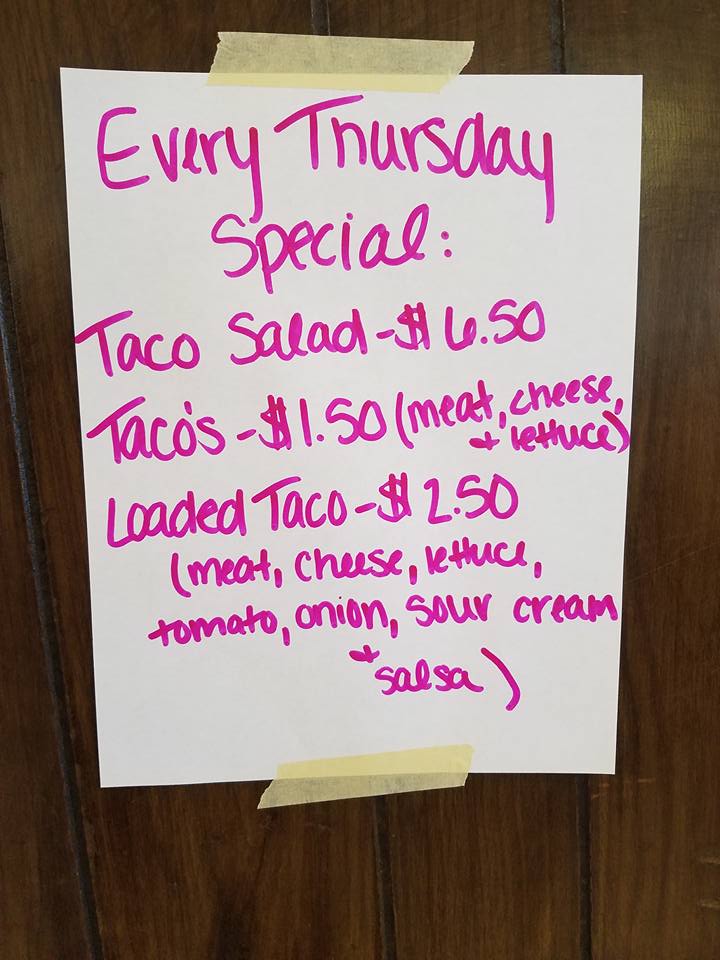 Every Thursday
Special:
Taco Salad - $6.50
Taco's - $1.50 (meat, cheese,
+ lettuce)
Loaded Taco - $2.50
(meat, cheese, lettuce,
tomato, onion, sour cream
+ salsa)